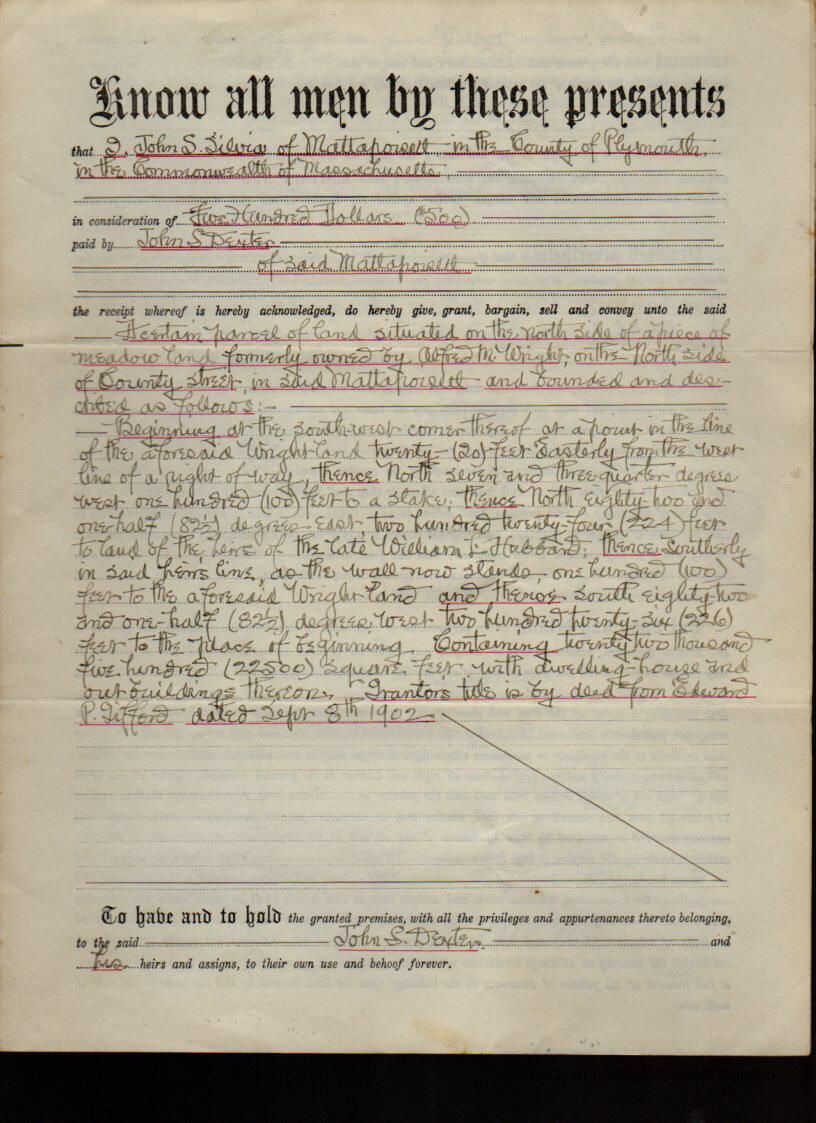 Know all men by these presents
that I, John S. Silvia of Mattapoisett, in the County of Plymouth,
in the Commonwealth of Massachusetts,
in consideration of Five Hundred Dollars (500)
paid by John S Dexter
of said Mattapoisett
the receipt whereof is hereby acknowledged, do hereby give, grant, bargain, sell and convey unto the said
A certain parcel of land situated on the north side of a piece of
meadow land formerly owned by Alfred M. Wright, on the North side
of County street, in said Mattapoisett and bounded and des-
cribed as follows:-
Beginning at the south-west corner thereof at a point in the line
of the aforesaid Wright land twenty (20) feet Easterly from the west
line of a right of way, thence North seven and three quarter degrees
west one hundred (100) feet to a stake, thence North eighty-two and
one-half (82½) degrees East, two hundred twenty-four (224) feet
to land of the heirs of the late William L. Hubbard; thence Southerly
in said heirs line, as the wall now stands, one hundred (100)
feet to the aforesaid Wright land and thence south eighty-two
and one-half (82½) degrees west two hundred twenty-six (226)
feet to the place of beginning. Containing twenty two thousand
five hundred (22500) square feet with dwelling-house and
out buildings thereon. Grantors title is by deed from Edward
P. Gifford dated Sept 8th 1902.
To have and to hold the granted premises, with all the privileges and appurtenances thereto belonging,
to the said John S. Dexter and
his heirs and assigns, to their own use and behoof forever.